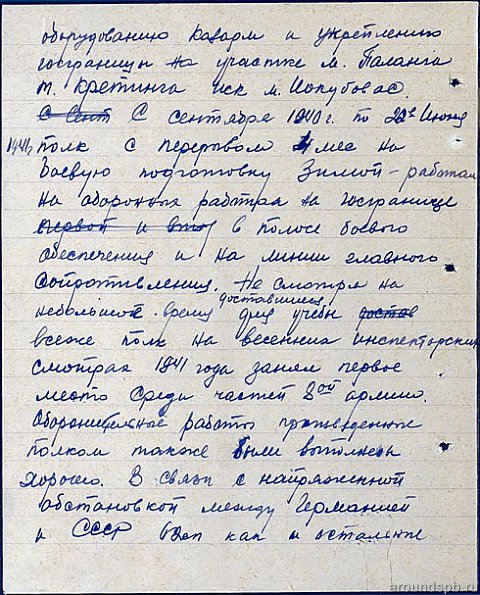 оборудованию казарм и укреплению
госграницы на участке м. Паланга
м. Кретинга иск м.
С сент С сентября 1940 г. по 22е Июня
1941г полк с перерывом 4 мес на
Боевую подготовку Зимой – работал
на оборонных работах на госгранице
первой и втор в полосе боевого
обеспечения и на линии главного
сопротивления. Не смотря на
небольшое время доставшееся для учебы достав
всеже полк на весенних инспекторских
смотрах 1941 года занял первое
место среди частей 8ой армии.
Оборонительные работы проведенные
полком также были выполнены
хорошо. В связи с напряженной
обстановкой между Германией
и СССР 62сп как и остальные
aroundspb.ru